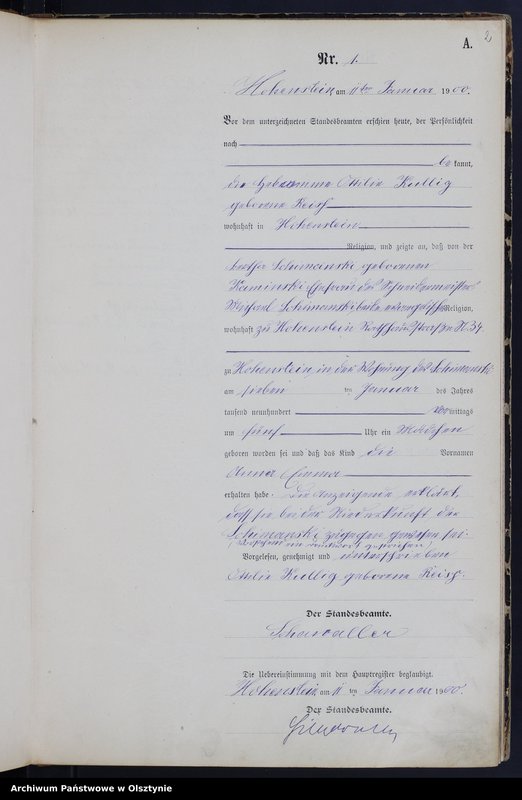 2
A.
Nr. 1.
Hohenstein, am 11ten Januar 1900.
Vor dem unterzeichneten Standesbeamten erschien heute, der Persönlichkeit
nach
be kannt,
die Hebamme Ottilie Kullig
geborene Reiß
wohnhaft in Hohenstein
Religion, und zeigte an, daß von der
Schimanski geborenen
Kaminski Ehefrau des Schneidermeisters
Michael Schimanski beide evangelischer Religion,
wohnhaft zu Hohenstein
zu Hohenstein, in der Wohnung des Schimanski
am sieben ten Januar des Jahres
tausend neunhundert mittags
um fünf Uhr ein Mädchen
geboren worden sei und daß das Kind die Vornamen
Anna Emma
erhalten habe. Die Anzeigende erklärt,
daß sie bei der Niederkunft der
Schimanski zugegen gewesen sei.
Vorgelesen, genehmigt und unterschrieben
Ottilie Kullig geborene Reiß.
Der Standesbeamte.
Die Uebereinstimmung mit dem Hauptregister beglaubigt.
Hohenstein, am 11 ten Januar 1900.
Der Standesbeamte.
Archiwum Państwowe w Olsztynie